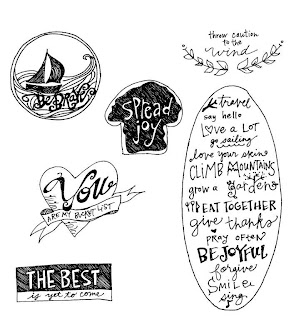 throw caution
to the
wind
Be Brave
Spread
joy
travel
say hello
love a lot
go sailing
love your skin
CLIMB MOUNTAINS
grow a garden
EAT TOGETHER
give thanks
pray often
BE JOYFUL
forgive
SMILE
sing
You
ARE MY BUCKET LIST
THE BEST
is yet to come